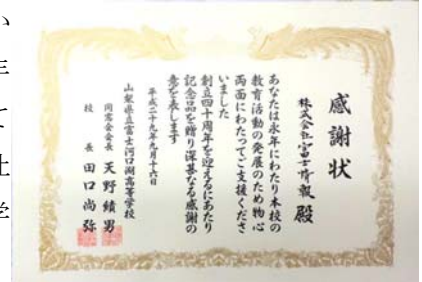 感謝状
株式会社富士情報 殿
あなたは永年にわたり本校の
教育活動の発展のため物心
両面にわたってご支援くださ
いました
創立四十周年を迎えるにあたり
記念品を贈り深甚なる感謝の
意を表します
平成二十九年九月十六日
山梨県立富士河口湖高等学校
同窓会会長 天野績男
校長 田口尚弥